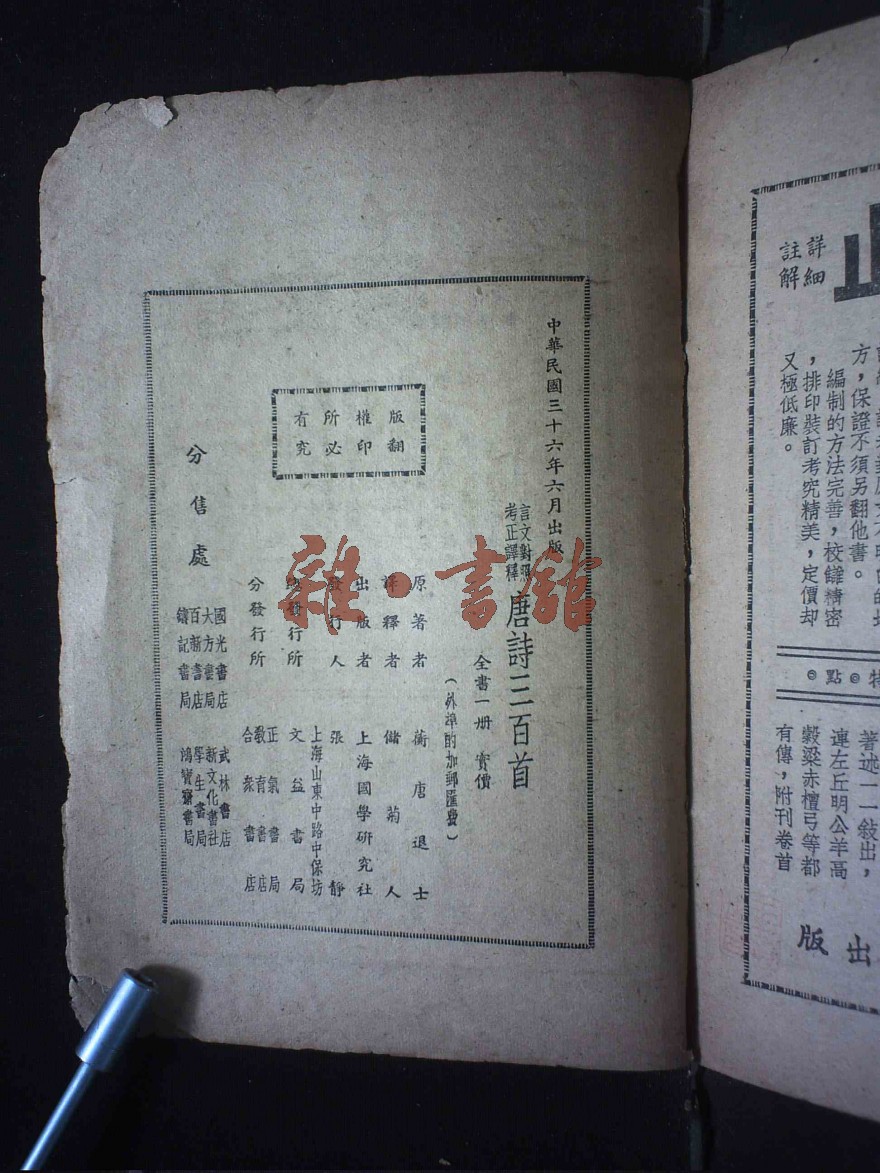 中華民國三十六年六月出版
言文對照
考正譯釋
唐詩三百首
全書一册 實價
(外埠酌加郵匯費)
原著者 蘅唐退士
譯釋者 儲菊人
出版者 上海國學研究社
發行人 張靜
上海山東中路中保坊
總發行所 文益書局
分發行所
正氣書局
教育書店
合衆書店
版權所有
翻印必究
分售處
國光書店 武林書店
大方書局 新文化書社
百新書店 學生書局
鑄記書局 鴻寶齋書局
雜·書館
詳細
註解
方,保證不須另翻他書。
編制的方法完善,校讎精密
,排印裝訂考究精美,定價却
又極低廉。
特◎點◎
著述一一敍出,
連左丘明公羊高
穀梁赤檀弓等都
有傳,附刊卷首
出版